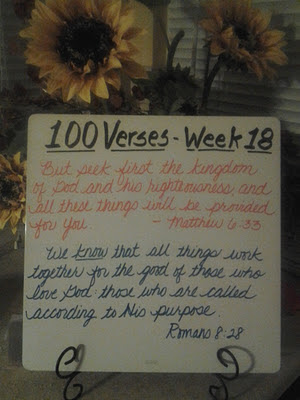 100 Verses - Week 18
But seek first the kingdom
of God and his righteousness, and
all these things will be provided
for you. - Matthew 6:33
We know that all things work
together for the good of those who
love God: those who are called
according to His purpose.
Romans 8:28